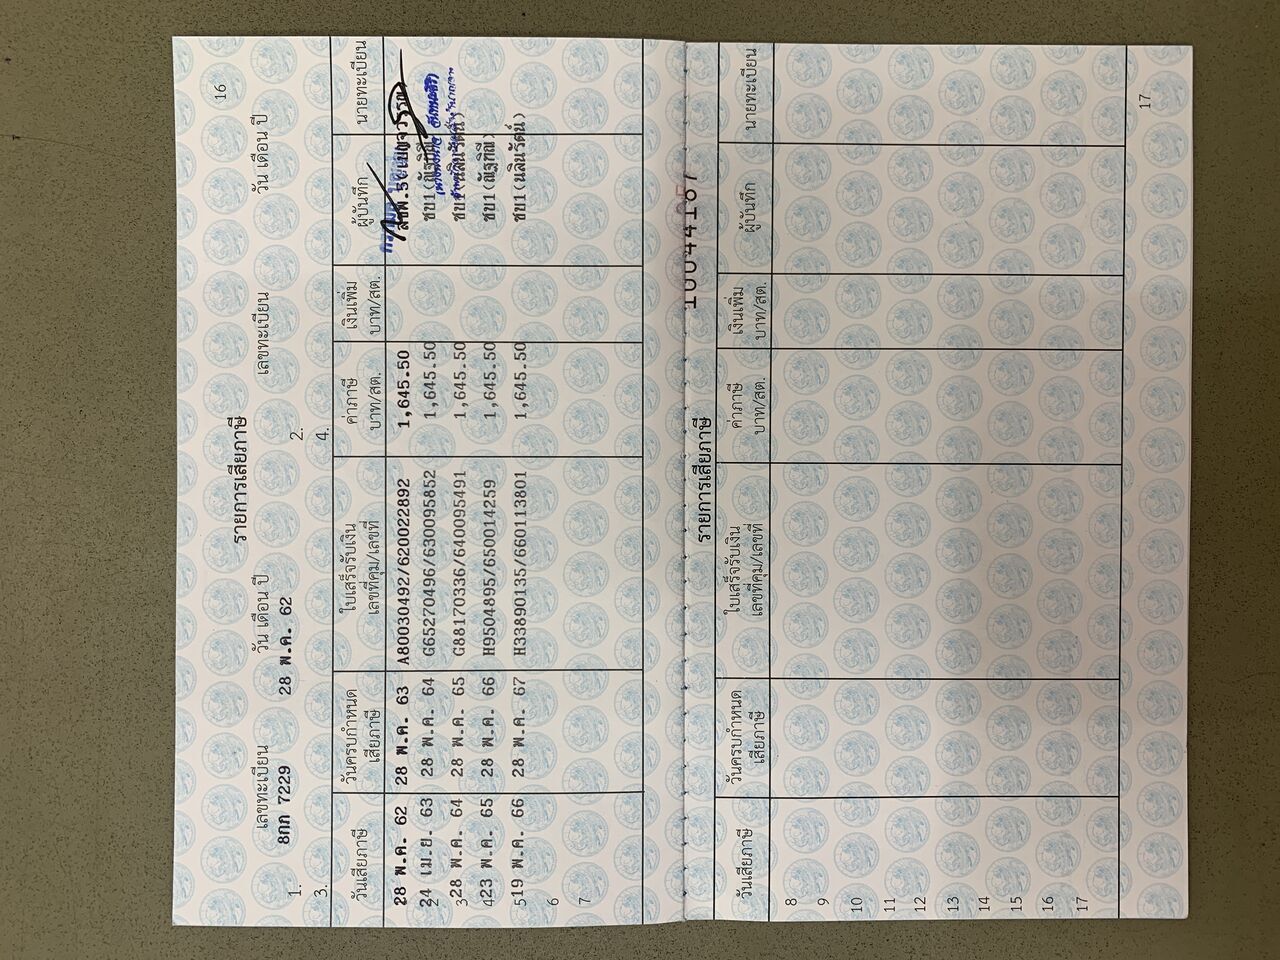 16
รายการเสียภาษี
เลขทะเบียน วัน เดือน ปี เลขทะเบียน วัน เดือน ปี
1. 8กก 7229 28 พ.ค. 62 2.
3. 4.
วันเสียภาษี วันครบกำหนด ใบเสร็จรับเงิน ค่าภาษี เงินเพิ่ม ผู้บันทึก นายทะเบียน
เสียภาษี เลขที่คุม/เลขที่ บาท/สต. บาท/สต.
28 พ.ค. 62 28 พ.ค. 63 A80030492/620022892 1,645.50
24 เม.ย. 63 28 พ.ค. 64 G65270496/630095852 1,645.50 ชบ1(ณัฐทิณี)
3 28 พ.ค. 64 28 พ.ค. 65 G88170336/640095491 1,645.50 ชบ1(นลินรัตน์)
4 23 พ.ค. 65 28 พ.ค. 66 H9504895/650014259 1,645.50 ชบ1(ณัฐทิณี)
5 19 พ.ค. 66 28 พ.ค. 67 H33890135/660113801 1,645.50 ชบ1(นลินรัตน์)
6
7
10044187
รายการเสียภาษี
วันเสียภาษี วันครบกำหนด ใบเสร็จรับเงิน ค่าภาษี เงินเพิ่ม ผู้บันทึก นายทะเบียน
เสียภาษี เลขที่คุม/เลขที่ บาท/สต. บาท/สต.
8
9
10
11
12
13
14
15
16
17
17